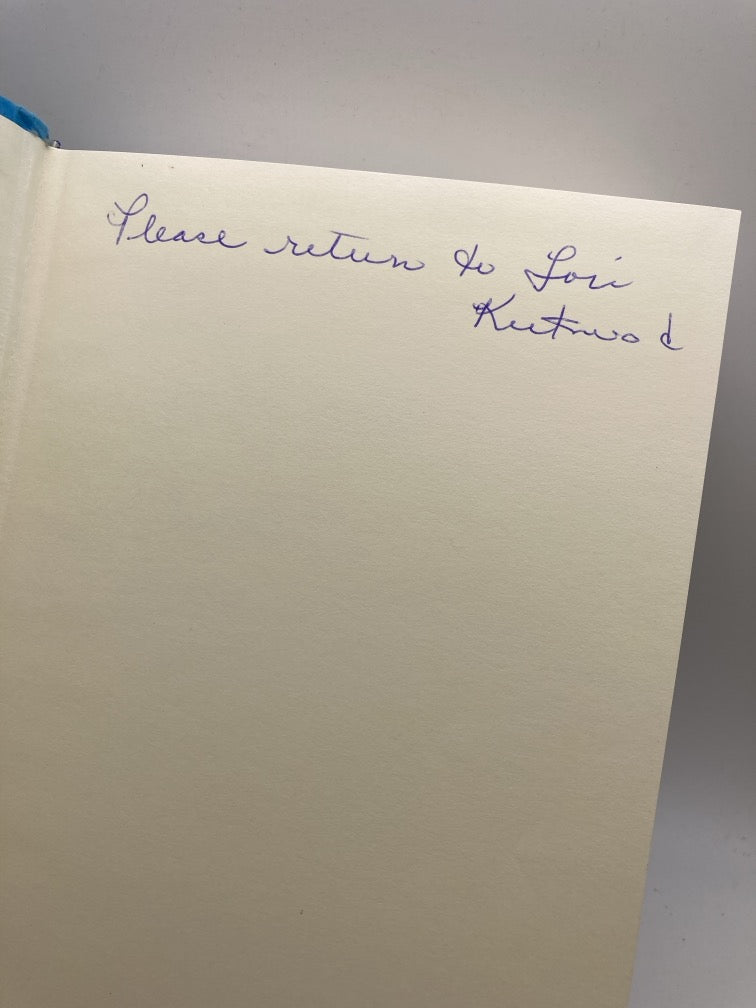 Please return to Lori